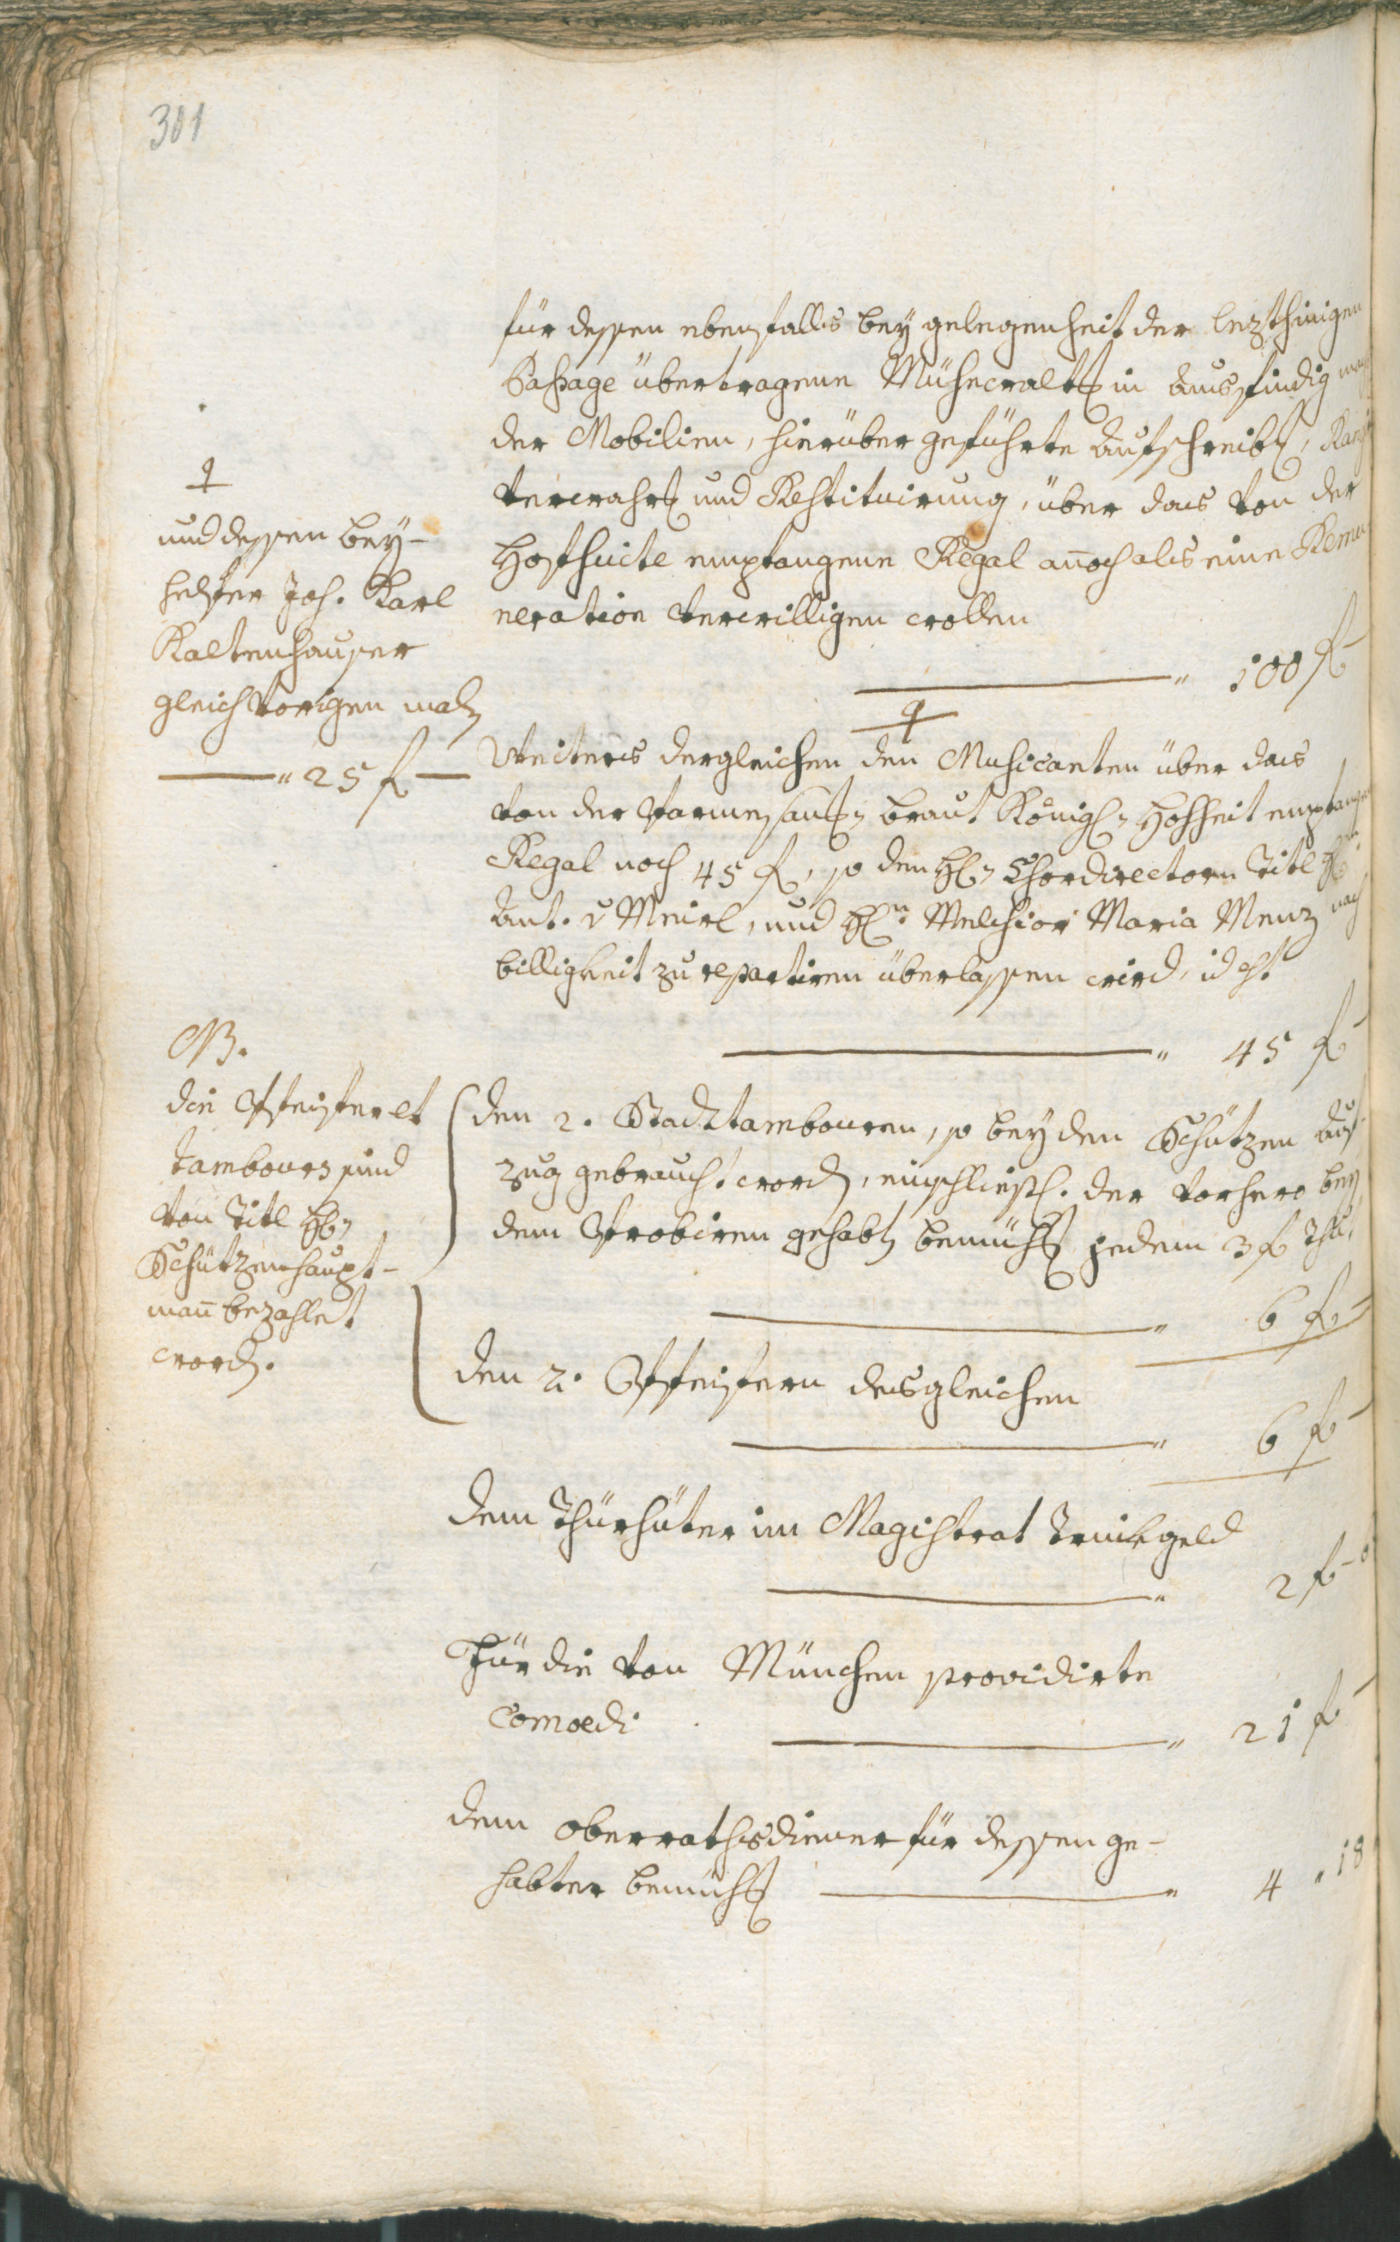 301
für dessen ebenfalls bey gelegenheit der lezthinigen
Passage übertragene Mühewalt in ausfindig
der Mobilien, hierüber geführte aufschreib,
verwahr und Restituirung, über das von der
Hofsuite empfangene Regal annoch als eine Remu
neration verwilligen wollen
" 100 f
und dessen bey-
helfer Joh. Karl
Kaltenhauser
gleich vorigen mals
" 25 f
Weiters dergleichen den Musicanten über das
von der Parmesanis. braut Königl. Hochheit empfangene
Regal noch 45 f, so den H. Chordirectorn Titl H.
Ant. v Meirl, und H.n Melchior Maria Menz nach
billigkeit zu repartiren überlassen wird, id est
" 45 f
NB.
die Pfeifer et
Tambours sind
von Titl H.
Schützenhaupt-
mann bezahlet
word.
den 2. Stadttambouren, so bey den Schützen auf
zug gebraucht word, einschliessl. der vorhero bey
dem Probiren gehabt bemüh jedem 3 f thut,
" 6 f
den 2. Pfeifern desgleichen
" 6 f
dem Thürhüter im Magistrat Trinkgeld
" 2 f
Für die von München providirte
Comoedi " 21 f
dem oberrathsdiener für dessen ge-
habter bemüh " 4 " 18